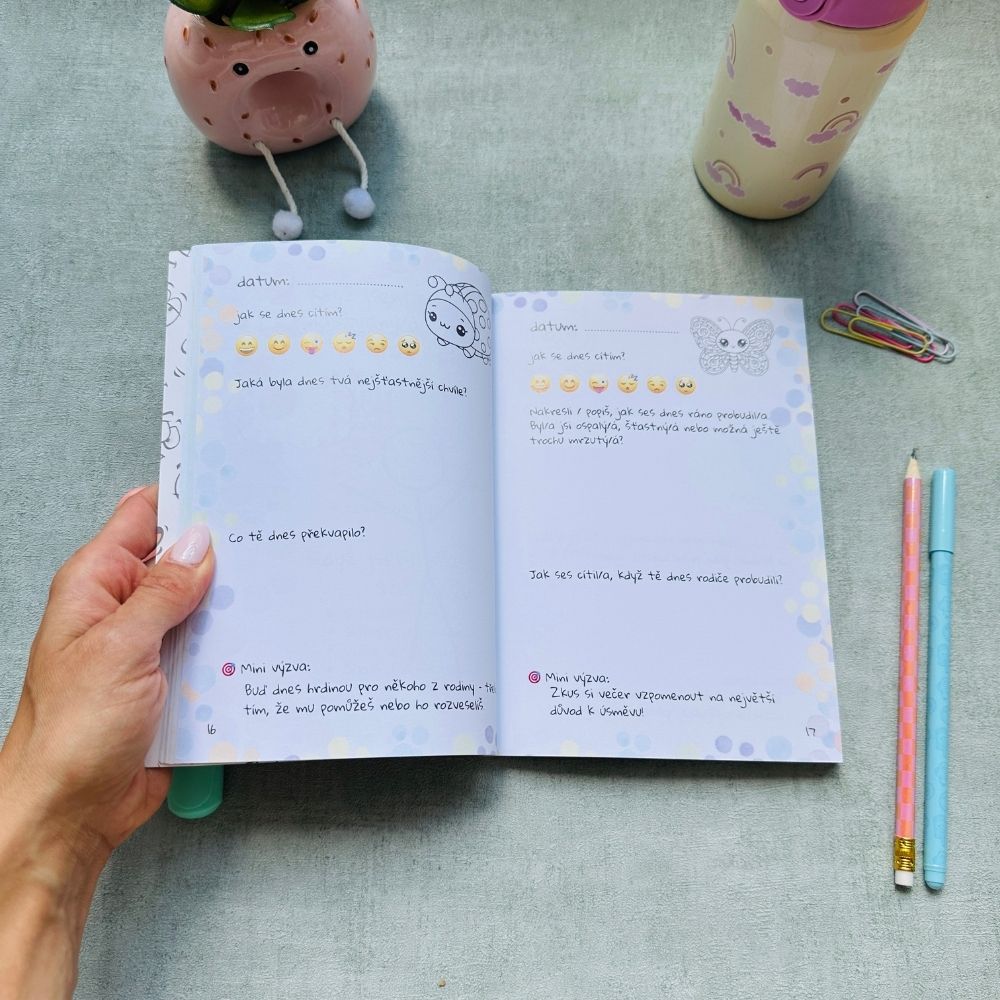 datum: ..............................
jak se dnes cítím?
Jaká byla dnes tvá nejšťastnější chvíle?
Co tě dnes překvapilo?
Mini výzva:
Buď dnes hrdinou pro někoho z rodiny -
tím, že mu pomůžeš nebo ho rozveselíš.
16
datum: ..............................
jak se dnes cítím?
Nakresli / popiš, jak ses dnes ráno probudil/a.
Byl/a jsi ospalý/á, šťastný/á nebo možná ještě
trochu mrzutý/á?
Jak ses cítil/a, když tě dnes rodiče probudili?
Mini výzva:
Zkus si večer vzpomenout na největší
důvod k úsměvu!
17